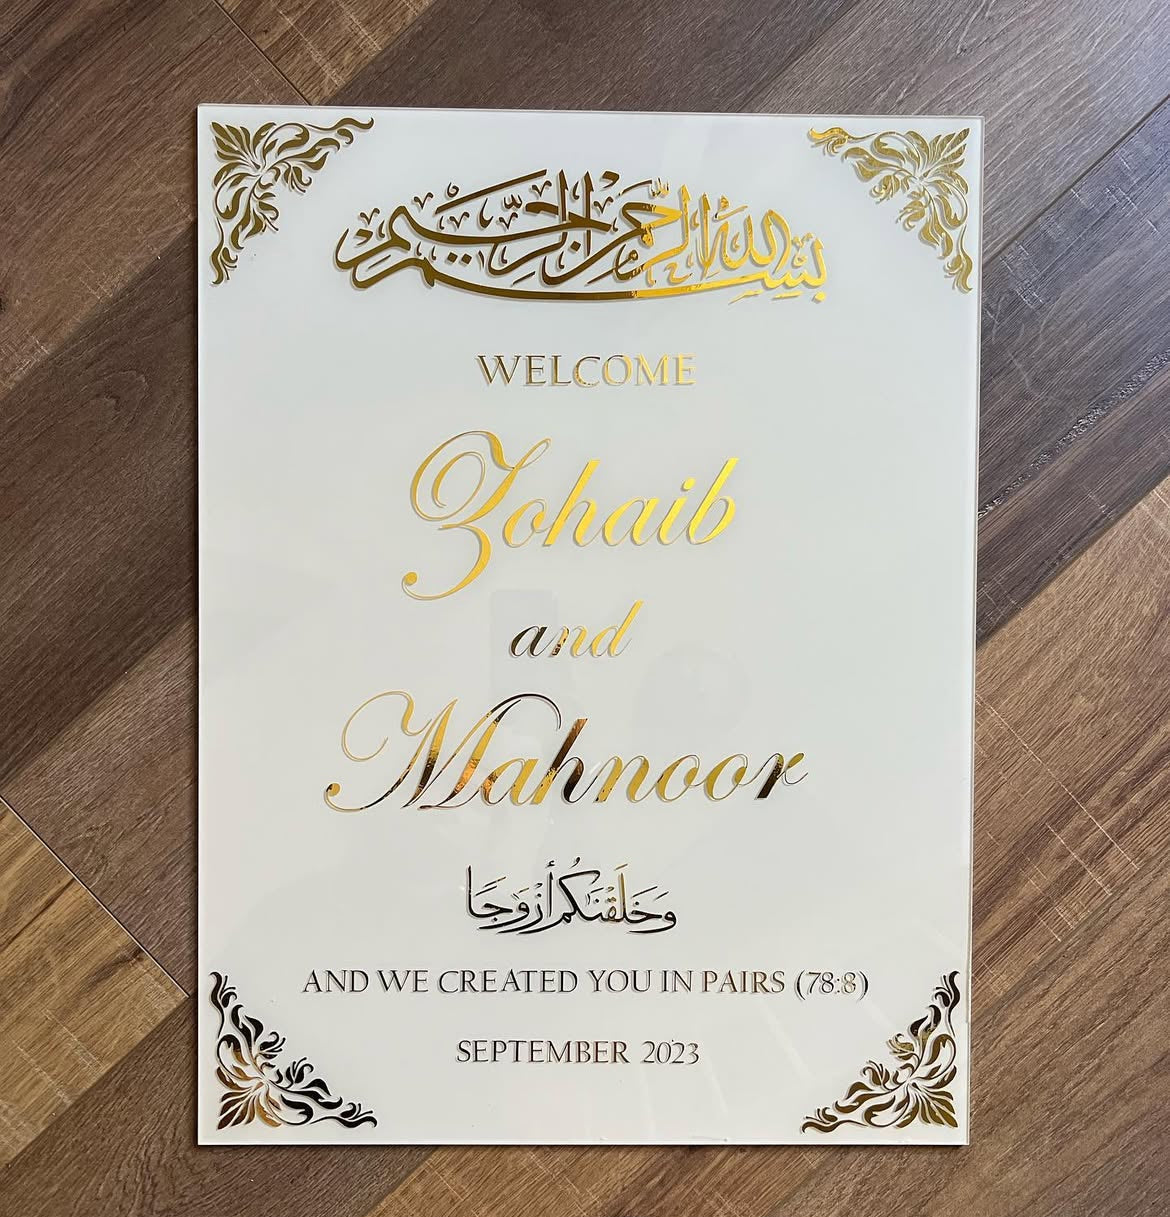 بسم الله الرحمن الرحيم
WELCOME
Zohaib
and
Mahnoor
وَخَلَقْنَٰكُمْ أَزْوَٰجًا
AND WE CREATED YOU IN PAIRS (78:8)
SEPTEMBER 2023